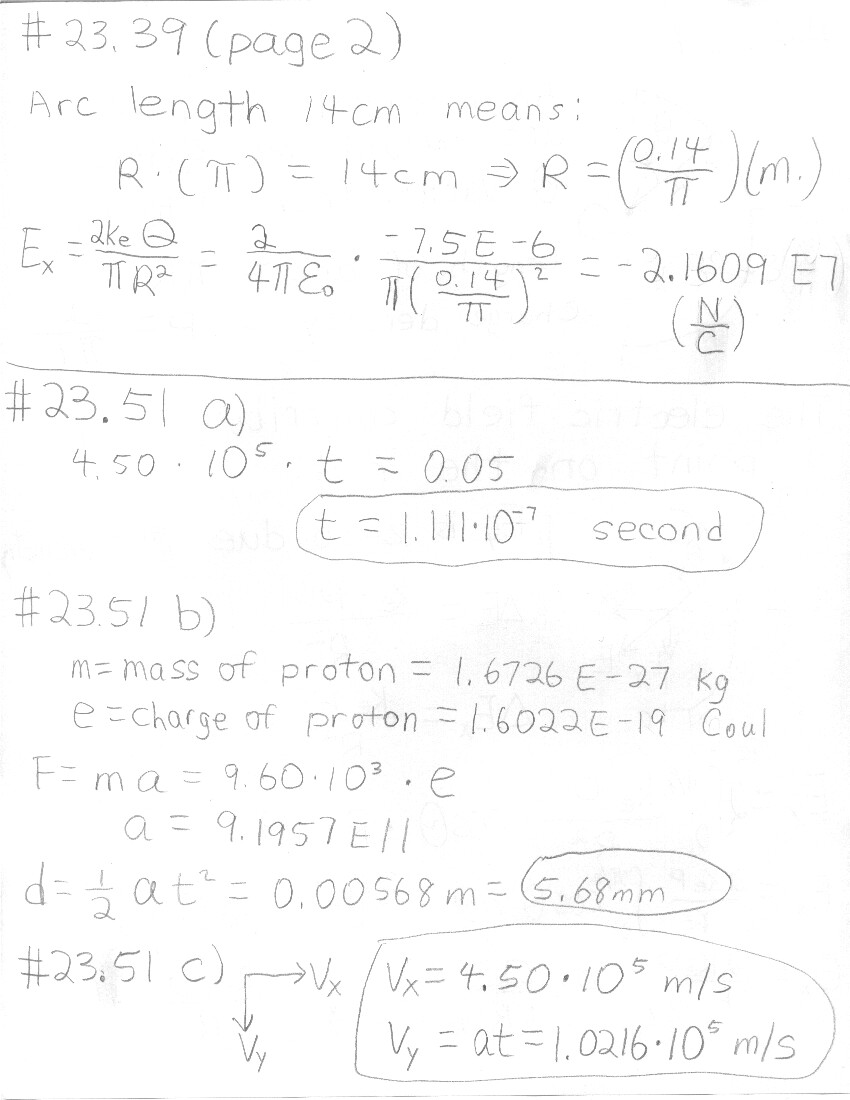 # 23.39 (page 2)
Arc length 14cm means:
R·(π) = 14cm ⇒ R = (0.14/π)(m.)
Eₓ = 2kₑQ/πR² = 2/4πε₀ · -7.5E-6/π(0.14/π)² = -2.1609 E7 (N/C)
#23.51 a)
4.50 · 10⁵ · t = 0.05
t = 1.111·10⁻⁷ second
#23.51 b)
m=mass of proton = 1.6726E-27 kg
e=charge of proton = 1.6022E-19 Coul
F= ma = 9.60·10³ · e
a = 9.1957E11
d= 1/2 at² = 0.00568m = 5.68mm
#23.51 c) Vₓ Vₓ= 4.50·10⁵ m/s
Vy Vy = at = 1.0216·10⁵ m/s